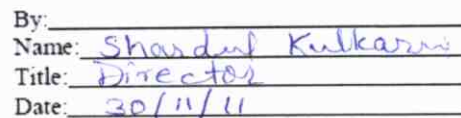 By:
Name: Shardul Kulkarni
Title: Director
Date: 30/11/11